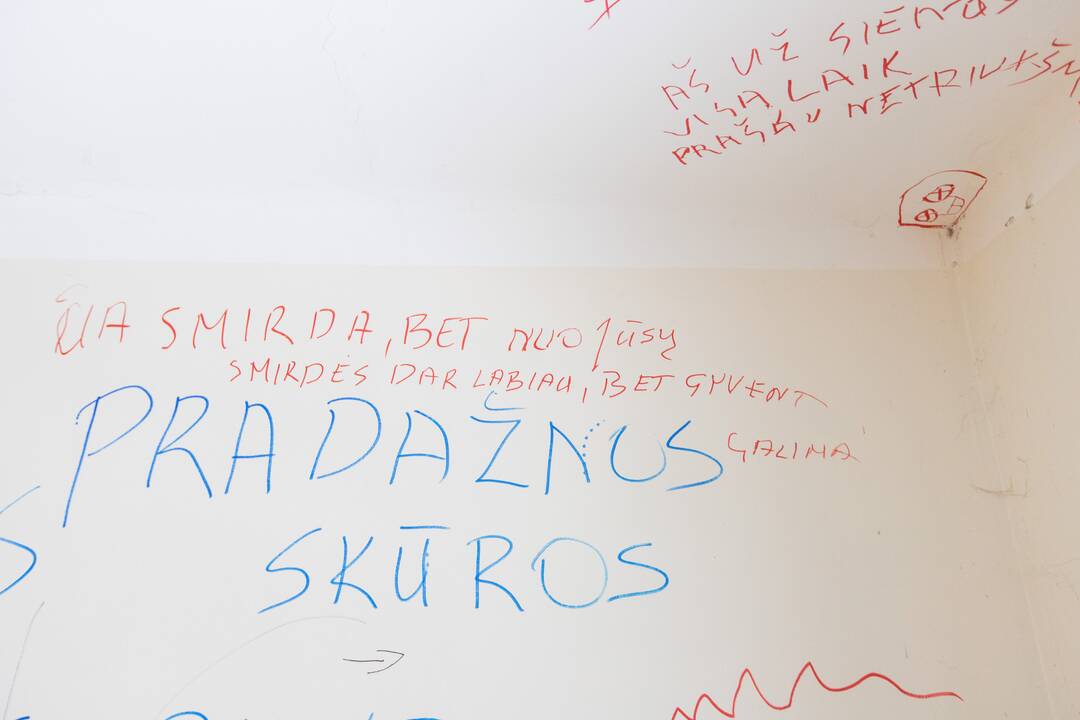 AŠ UŽ SIENOS
VISA LAIK
PRAŠAU NETRIUKŠM
ČIA SMIRDA, BET NUO JŪSŲ
SMIRDĖS DAR LABIAU, BET GYVENT
GALIMA
PRADAŽNUS
SKŪROS